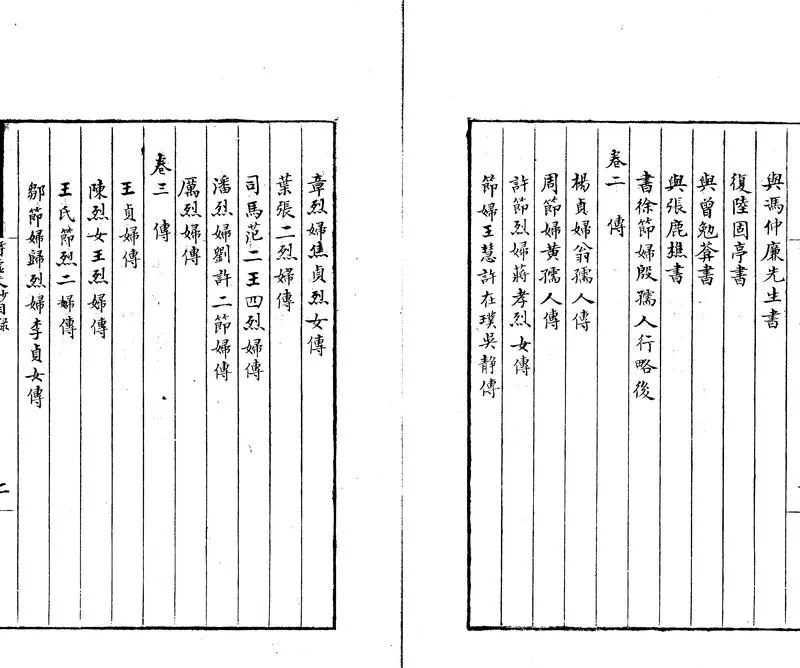 與馮仲廉先生書
復陸固亭書
與曾勉葊書
與張鹿樵書
書徐節婦殷孺人行略後
卷二 傳
楊貞婦翁孺人傳
周節婦黃孺人傳
許節烈婦蔣孝烈女傳
節婦王慧許在璞吳靜傳
章烈婦焦貞烈女傳
葉張二烈婦傳
司馬范二王四烈婦傳
潘烈婦劉許二節婦傳
厲烈婦傳
卷三 傳
王貞婦傳
陳烈女王烈婦傳
王氏節烈二婦傳
鄒節婦歸烈婦李貞女傳
二